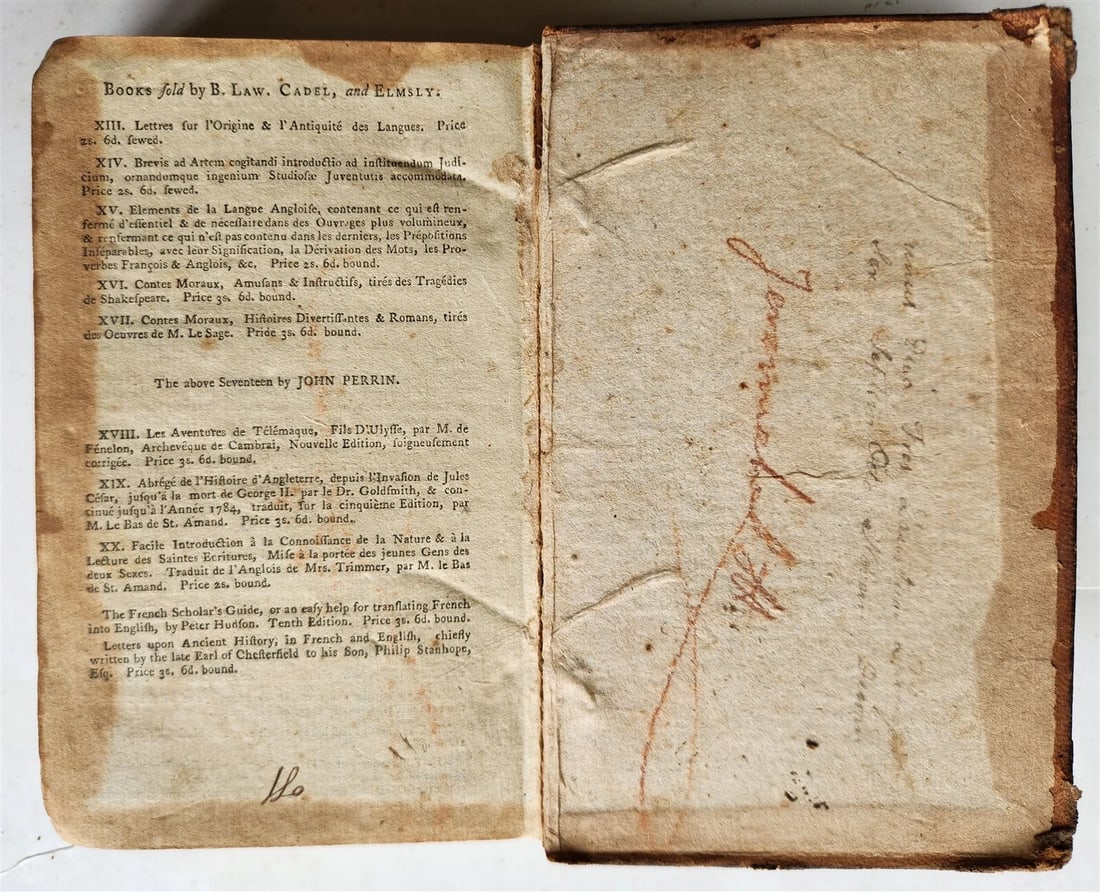 BOOKS ſold by B. LAW. CADEL, and ELMSLY.
XIII. Lettres ſur l'Origine & l'Antiquité des Langues. Price
2s. 6d. ſewed.
XIV. Brevis ad Artem cogitandi introductio ad inſtituendum Judi-
cium, ornandumque ingenium Studioſæ Juventutis accommodata.
Price 2s. 6d. ſewed.
XV. Elemens de la Langue Angloiſe, contenant ce qui eſt ren-
fermé d'eſſentiel & de néceſſaire dans des Ouvrages plus volumineux,
& renfermant ce qui n'eſt pas contenu dans les derniers, les Prépoſitions
Inſéparables, avec leur Signification, la Dérivation des Mots, les Pro-
verbes François & Anglois, &c. Price 2s. 6d. bound.
XVI. Contes Moraux, Amuſans & Inſtructifs, tirés des Tragédies
de Shakeſpeare. Price 3s. 6d. bound.
XVII. Contes Moraux, Hiſtoires Divertiſſantes & Romans, tirés
des Oeuvres de M. Le Sage. Pride 3s. 6d. bound.
The above Seventeen by JOHN PERRIN.
XVIII. Les Aventures de Télémaque, Fils D'Ulyſſe, par M. de
Fénelon, Archevêque de Cambrai, Nouvelle Edition, ſoigneuſement
corrigée. Price 3s. 6d. bound.
XIX. Abrégé de l'Hiſtoire d'Angleterre, depuis l'Invaſion de Jules
Céſar, juſqu'à la mort de George II. par le Dr. Goldſmith, & con-
tinué juſqu'à l'Année 1784, traduit, ſur la cinquième Edition, par
M. Le Bas de St. Amand. Price 3s. 6d. bound.
XX. Facile Introduction à la Connoiſſance de la Nature & à la
Lecture des Saintes Ecritures, Miſe à la portée des jeunes Gens des
deux Sexes. Traduit de l'Anglois de Mrs. Trimmer, par M. le Bas
de St. Amand. Price 2s. bound.
The French Scholar's Guide, or an eaſy help for tranſlating French
into Engliſh, by Peter Hudſon. Tenth Edition. Price 3s. 6d. bound.
Letters upon Ancient Hiſtory, in French and Engliſh, chiefly
written by the late Earl of Cheſterfield to his Son, Philip Stanhope,
Eſq. Price 3s. 6d. bound.